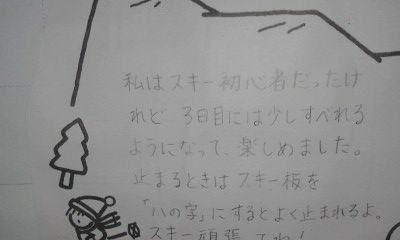 私はスキー初心者だったけ
れど 3日目には少しすべれる
ようになって、楽しめました。
止まるときはスキー板を
「ハの字」にするとよく止まれるよ。
スキー頑張ってね!